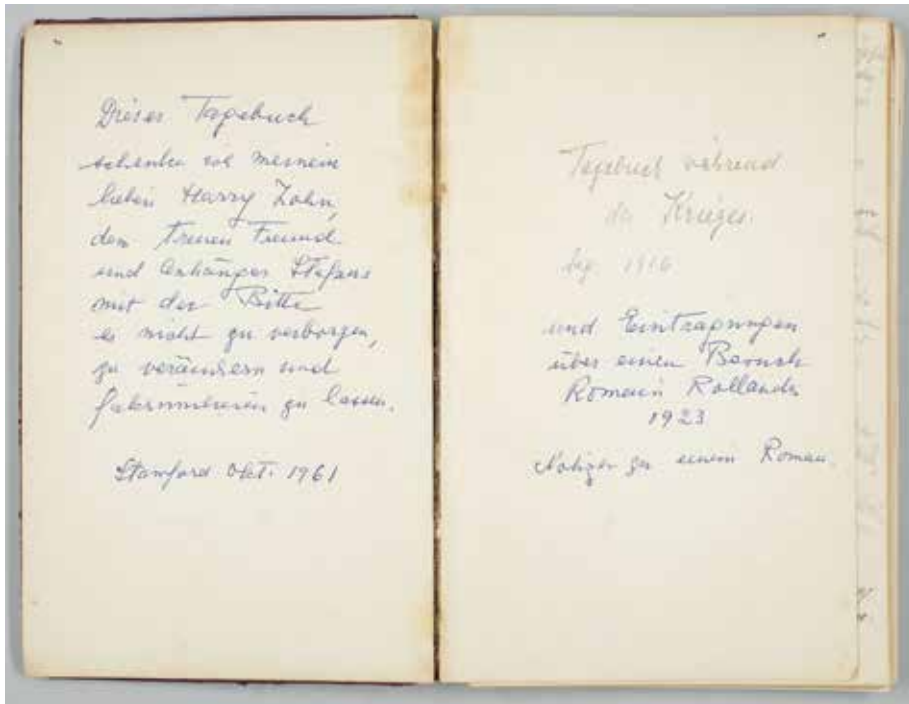 Dieses Tagebuch
schenke ich meinem
lieben Harry Zohn,
dem treuen Freund
und Anhänger Stefans
mit der Bitte
es nicht zu verborgen,
zu veräussern und
faksimilieren zu lassen.
Stamford Okt. 1961
Tagebuch während
des Krieges.
beg. 1916
und Eintragungen
über einen Besuch
Romain Rollands
1923
Notizen zu einem Roman.